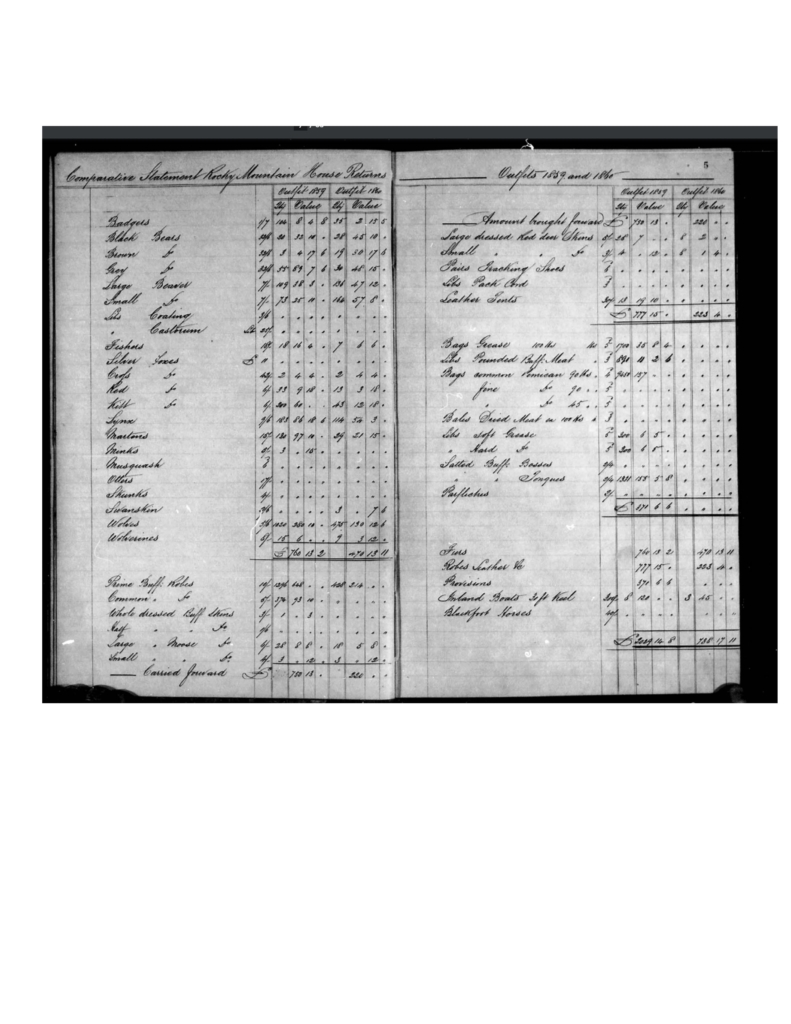 Comparative Statement Rocky Mountain House Returns
Outfit 1859 Outfit 1860
Qty Value Qty Value
Badgers 8 4 8 35 2 15 5
Black Bears 45 10
Brown Do 3 4 17 6 19 30 17 6
Grey Do 55 89 7 6 30 48 15
Large Beaver 109 38 3 136 47 12
Small Do 7/ 73 25 11 164 57 8
Lbs Coating
" Castorum Lb
Fishers 18 16 4 7 6 6
Silver Foxes £
Cross Do 2 4 4 2 4 4
Red Do 33 9 18 13 3 18
Kitt Do 200 60 43 12 18
Lynx 9/6 183 86 18 6 114 54 3
Martens 15/ 130 97 10 29 21 15
Minks 3 15
Musquash
Otters
Skunks
Swanskin 3 7 6
Wolves 1020 280 10 475 130 12 6
Wolverines 15 6 9 3 12
£ 760 13 2 470 13 11
Prime Buff: Robes 10/ 1296 648 428 214
Common " Do 5/ 374 93 10
Whole dressed Buff Skins 3/ 1 3
Half " " Do
Large " Moose Do 6/ 28 8 8 18 5 8
Small " " Do 4/ 3 12 3 12
Carried forward £ 750 13 220
5
Outfits 1859 and 1860
Outfit 1859 Outfit 1860
Qty Value Qty Value
Amount brought forward £ 750 13 220
Large dressed Red deer Skins 5/ 28 7 8 2
Small " " Do 3/ 4 12 8 1 4
Pairs Tracking Shoes
Lbs Pack Cord
Leather Tents 30/ 13 19 10
£ 777 15 223 4
Bags Grease 100 lbs 1700 35 8 4
Lbs Pounded Buff: Meat 890 11 2 6
Bags common Pemican 90 lbs
fine Do 90
" Do 45
Bales Dried Meat ea 100 lbs
Lbs Soft Grease 300 6 5
" Hard Do 300 6 5
Salted Buff: Bosses
" " Tongues 155 5 8
Parflectus
£ 370 6 6
Furs 760 13 2 470 13 11
Robes Leather &c 777 15 223 4
Provisions 370 6 6
Inland Boats 30 ft Keel 8 120 3 45
Blackfoot Horses
£ 2029 14 8 738 17 11